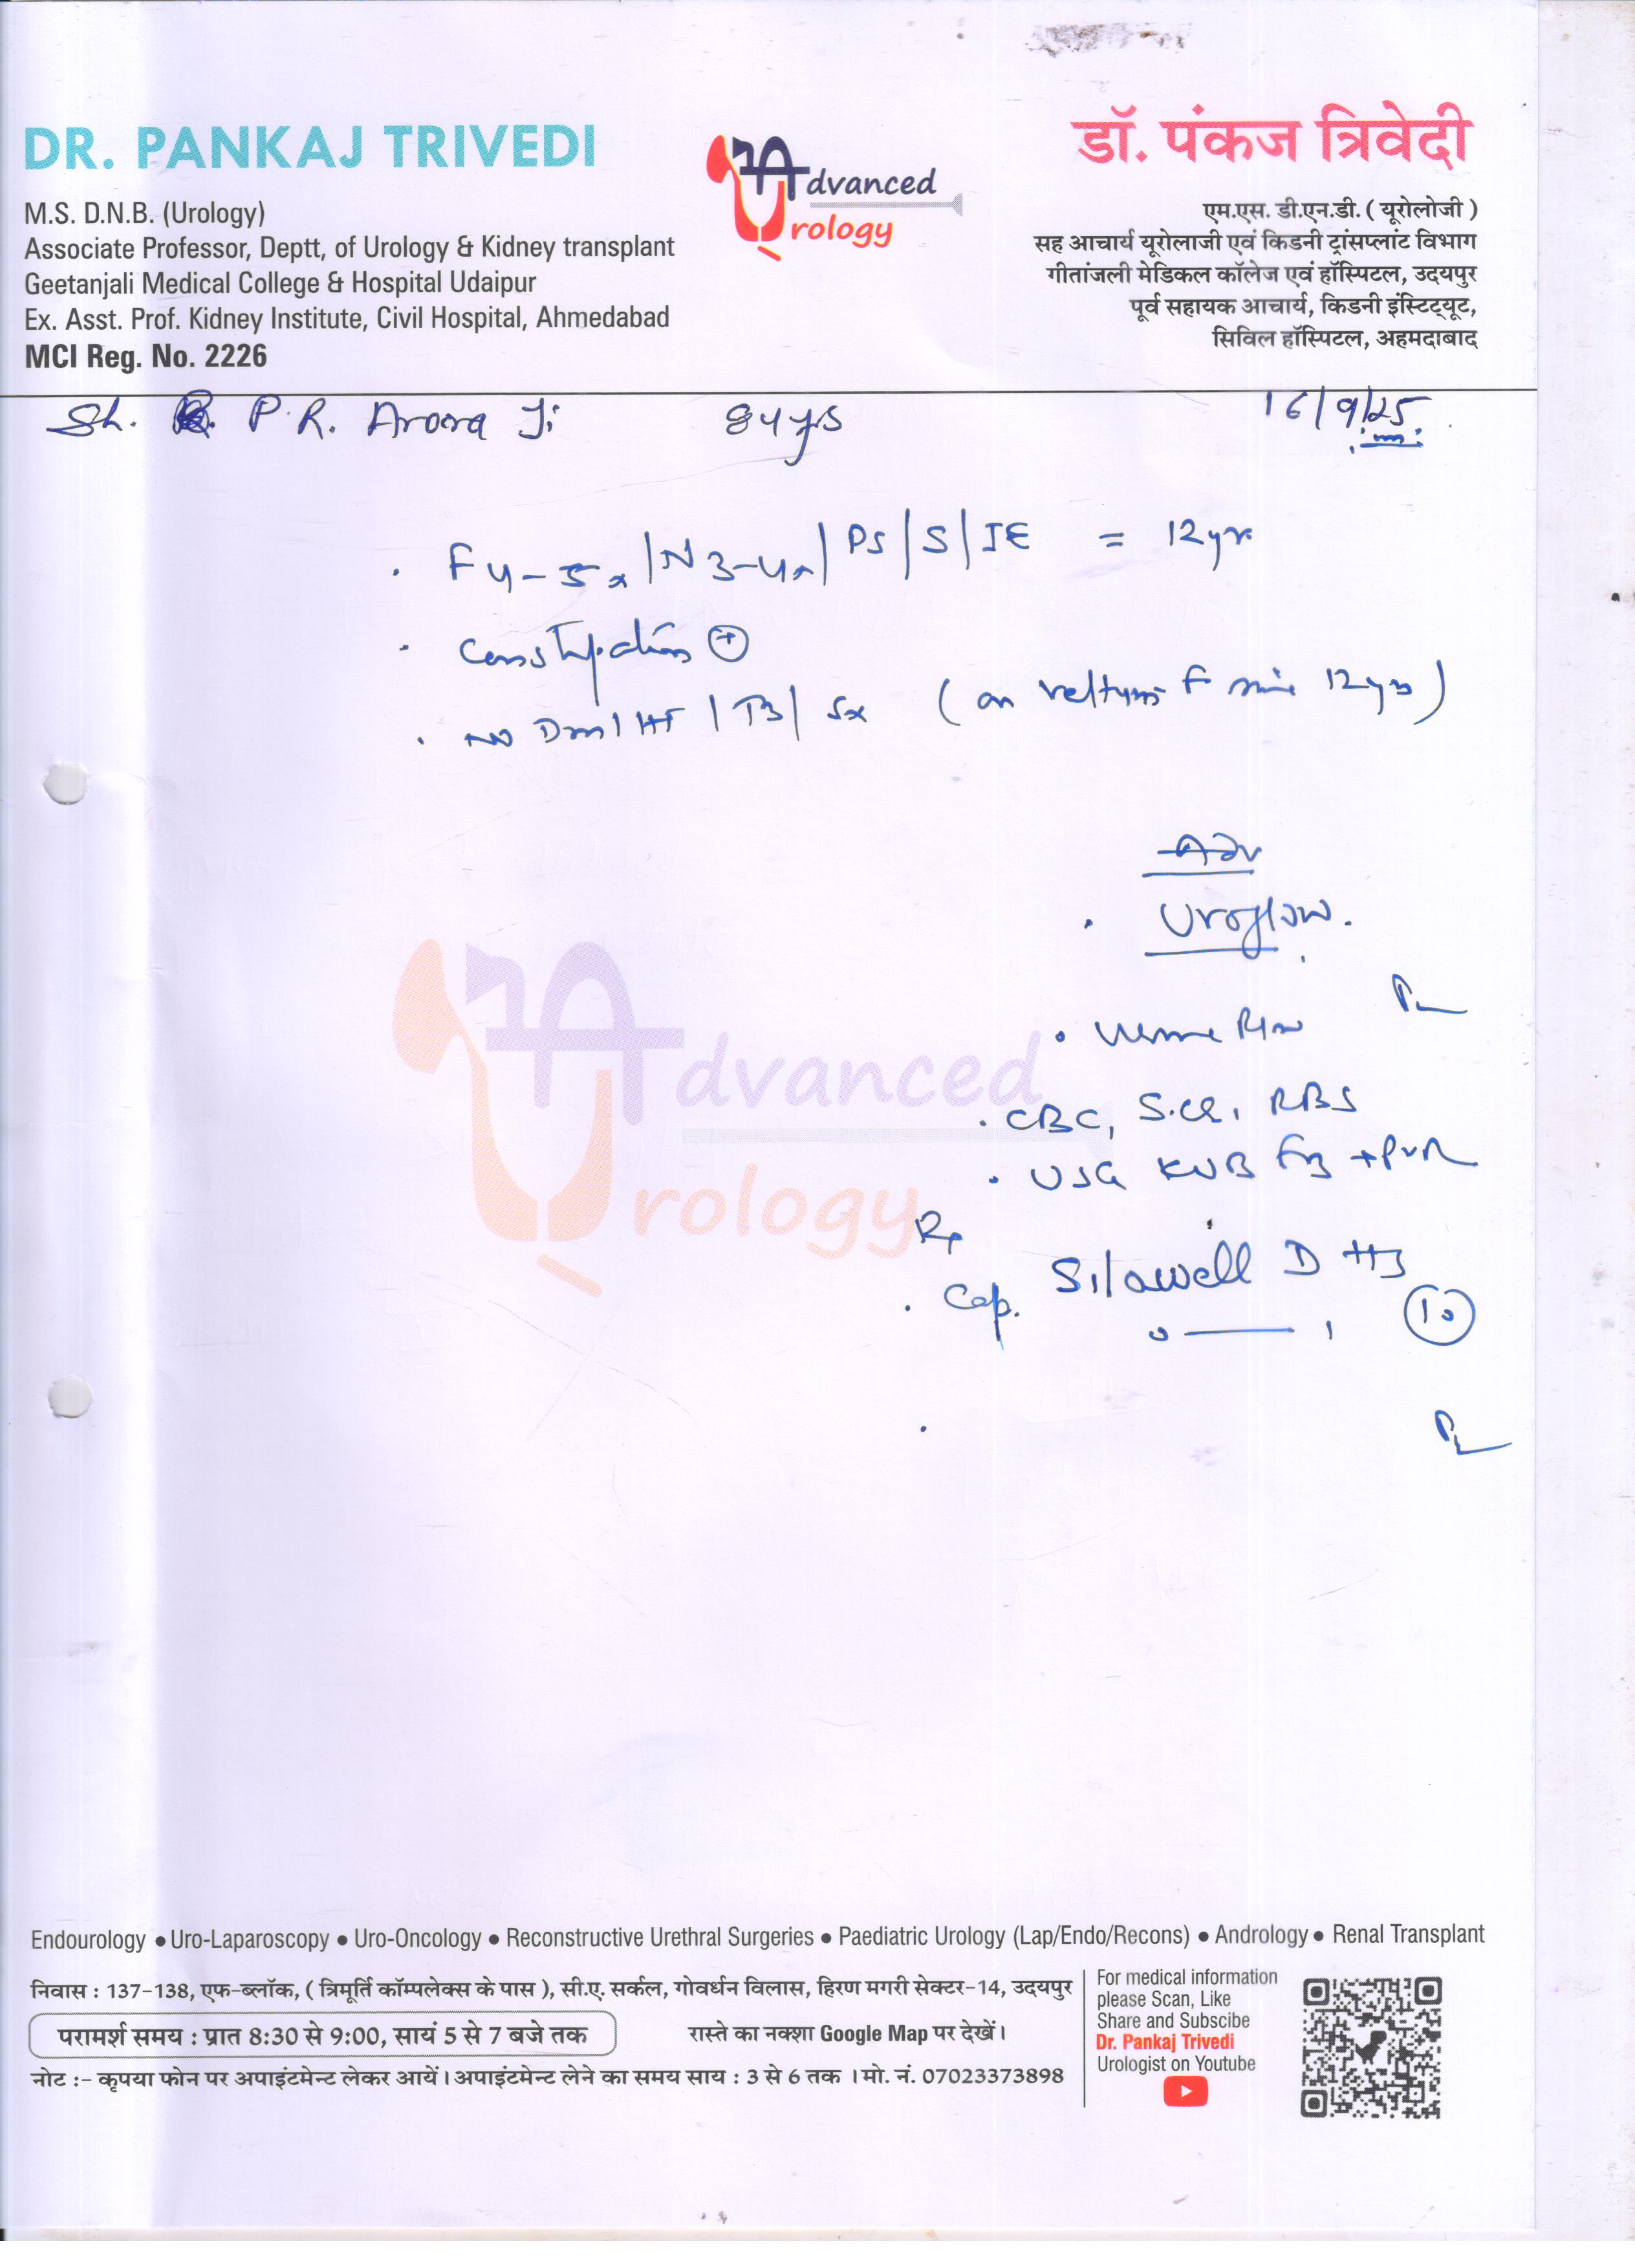 DR. PANKAJ TRIVEDI
M.S. D.N.B. (Urology)
Associate Professor, Deptt, of Urology & Kidney transplant
Geetanjali Medical College & Hospital Udaipur
Ex. Asst. Prof. Kidney Institute, Civil Hospital, Ahmedabad
MCI Reg. No. 2226
Advanced
Urology
डॉ. पंकज त्रिवेदी
एम.एस. डी.एन.डी. ( यूरोलोजी )
सह आचार्य यूरोलाजी एवं किडनी ट्रांसप्लांट विभाग
गीतांजली मेडिकल कॉलेज एवं हॉस्पिटल, उदयपुर
पूर्व सहायक आचार्य, किडनी इंस्टिट्यूट,
सिविल हॉस्पिटल, अहमदाबाद
Sh. P.R. Arora Ji 84 yrs 16/9/25
. F4-5x/N3-4x/PS/S/IE = 12yr
. Constipation +
. no Dm/HT/TB/Sx (on F since 12yrs)
Adv
. Uroflow.
. Urine R/m
. CBC, S.Cr, RBS
. USG KUB + PVR
Rx
. Cap. Silowell D
0 — 1 10
Advanced
Urology
Endourology • Uro-Laparoscopy • Uro-Oncology • Reconstructive Urethral Surgeries • Paediatric Urology (Lap/Endo/Recons) • Andrology • Renal Transplant
निवास : 137-138, एफ-ब्लॉक, ( त्रिमूर्ति कॉम्पलेक्स के पास ), सी.ए. सर्कल, गोवर्धन विलास, हिरण मगरी सेक्टर-14, उदयपुर
परामर्श समय : प्रात 8:30 से 9:00, सायं 5 से 7 बजे तक
रास्ते का नक्शा Google Map पर देखें।
नोट :- कृपया फोन पर अपाइंटमेन्ट लेकर आयें। अपाइंटमेन्ट लेने का समय साय : 3 से 6 तक । मो. नं. 07023373898
For medical information
please Scan, Like
Share and Subscibe
Dr. Pankaj Trivedi
Urologist on Youtube